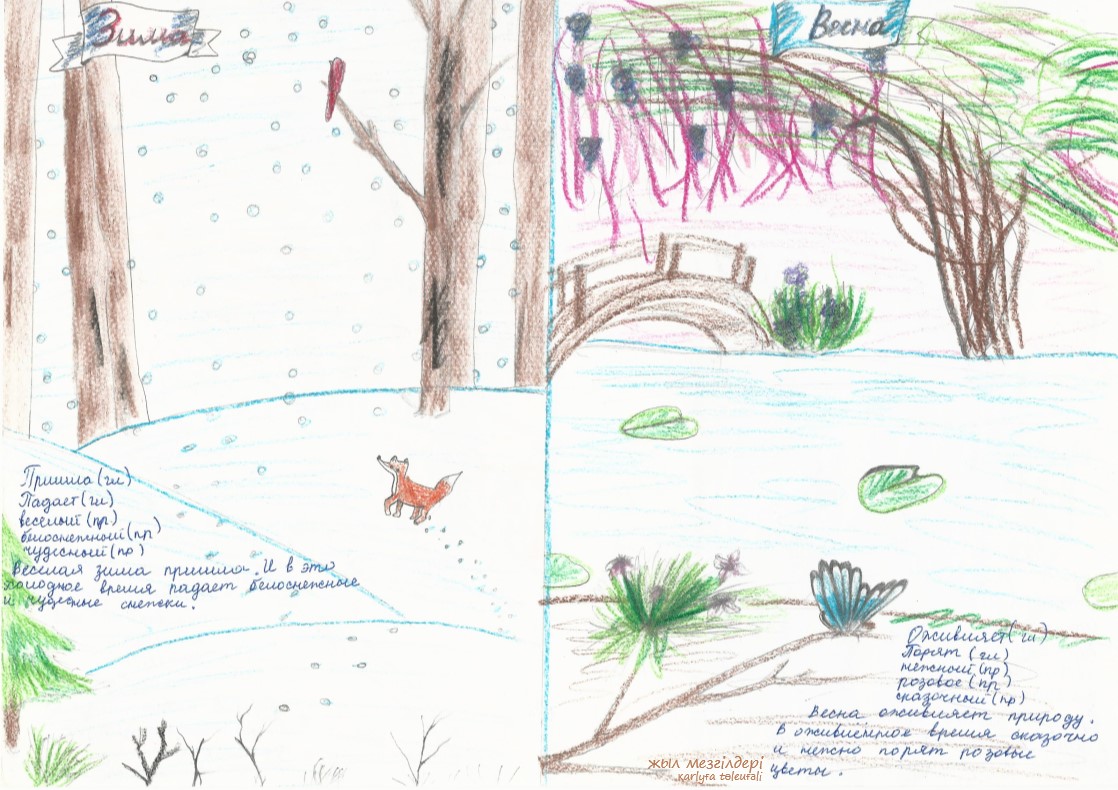 Зима
Пришла (гл)
Падает (гл)
веселый (пр)
белоснежный (пр)
чудесный (пр)
Веселая зима пришла. И в это
холодное время падает белоснежные
и чудесные снежки.
Весна
Оживляет (гл)
Парят (гл)
нежный (пр)
розовое (пр)
сказочный (пр)
Весна оживляет природу.
В оживлемное время сказочно
и нежно порят розовые
цветы.
жыл мезгілдері
karlyfa toleufali